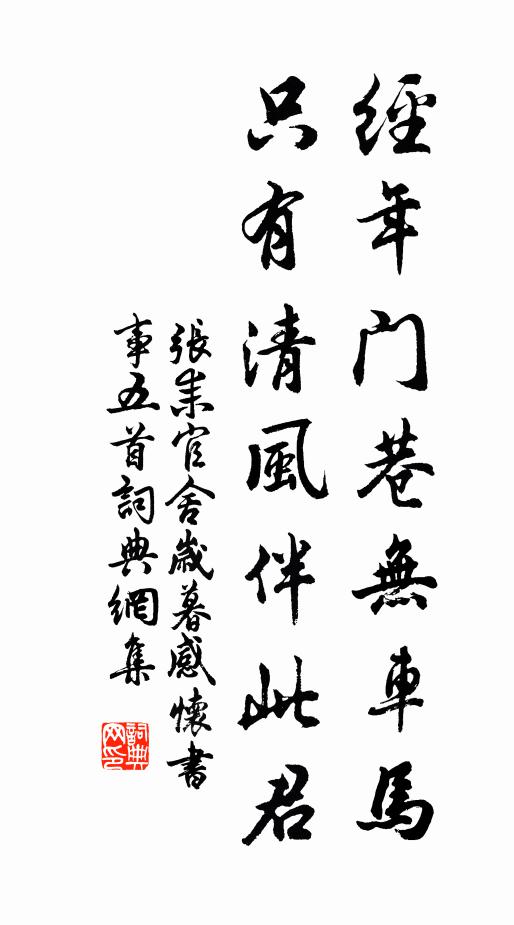 經年門巷無車馬
只有清風伴此君
張耒官舍歲暮感懷書
事五首詞典網集
詞典
网印